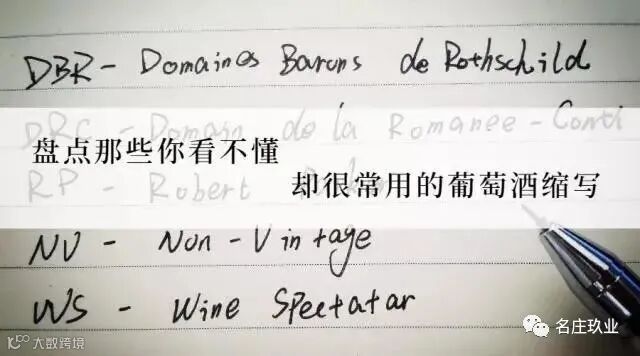 DBR - Domaines Barons de Rothschild
DRC - Domain de la Romanee - Conti
盘点那些你看不懂
RP - Robert
却很常用的葡萄酒缩写
NV - Non - Vintage
WS - Wine Spectatar
名庄玖业
大数跨境